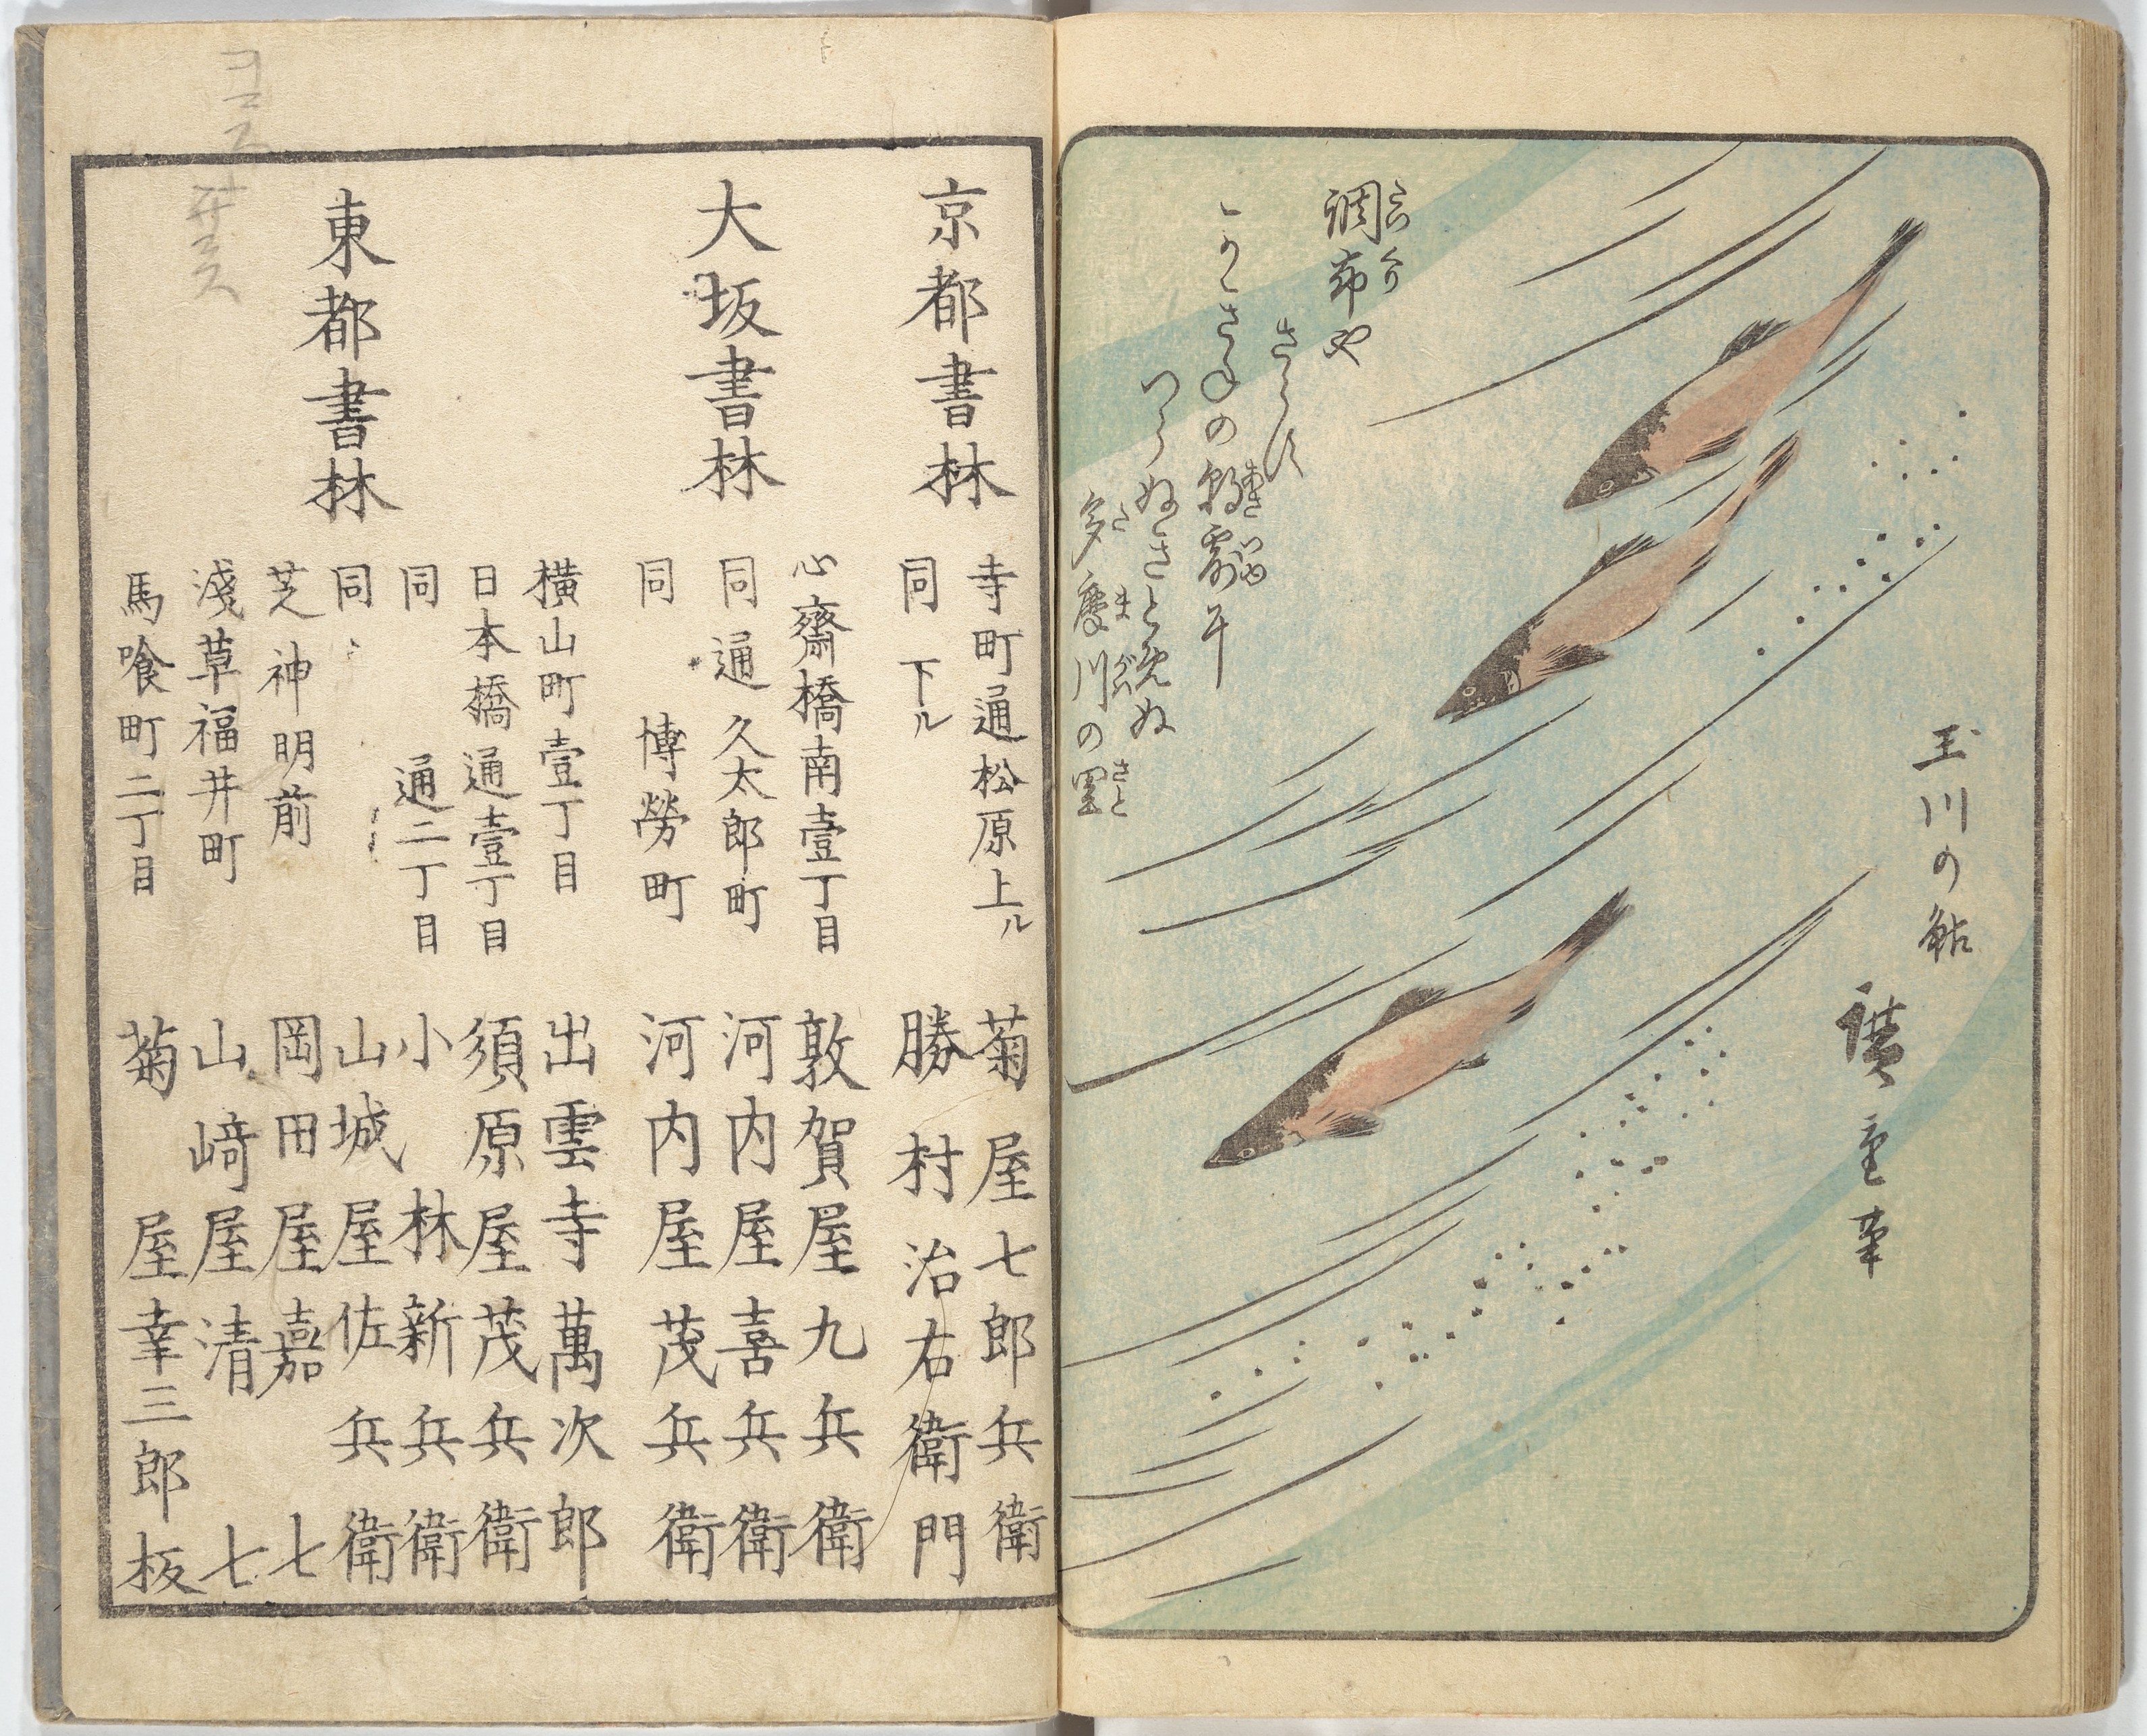 玉川の鮎
廣重筆
調布や
さらす
かきねの朝露を
つらぬきとめぬ
多摩川の里
さと
京都書林
寺町通松原上ル 菊屋七郎兵衛
同 下ル 勝村治右衛門
大坂書林
心齋橋南壹丁目 敦賀屋九兵衛
同 通久太郎町 河内屋喜兵衛
同 博勞町 河内屋茂兵衛
東都書林
横山町壹丁目 出雲寺萬次郎
日本橋通壹丁目 須原屋茂兵衛
同 通二丁目 小林新兵衛
同 山城屋佐兵衛
芝神明前 岡田屋嘉七
淺草福井町 山﨑屋清七
馬喰町二丁目 菊屋幸三郎板